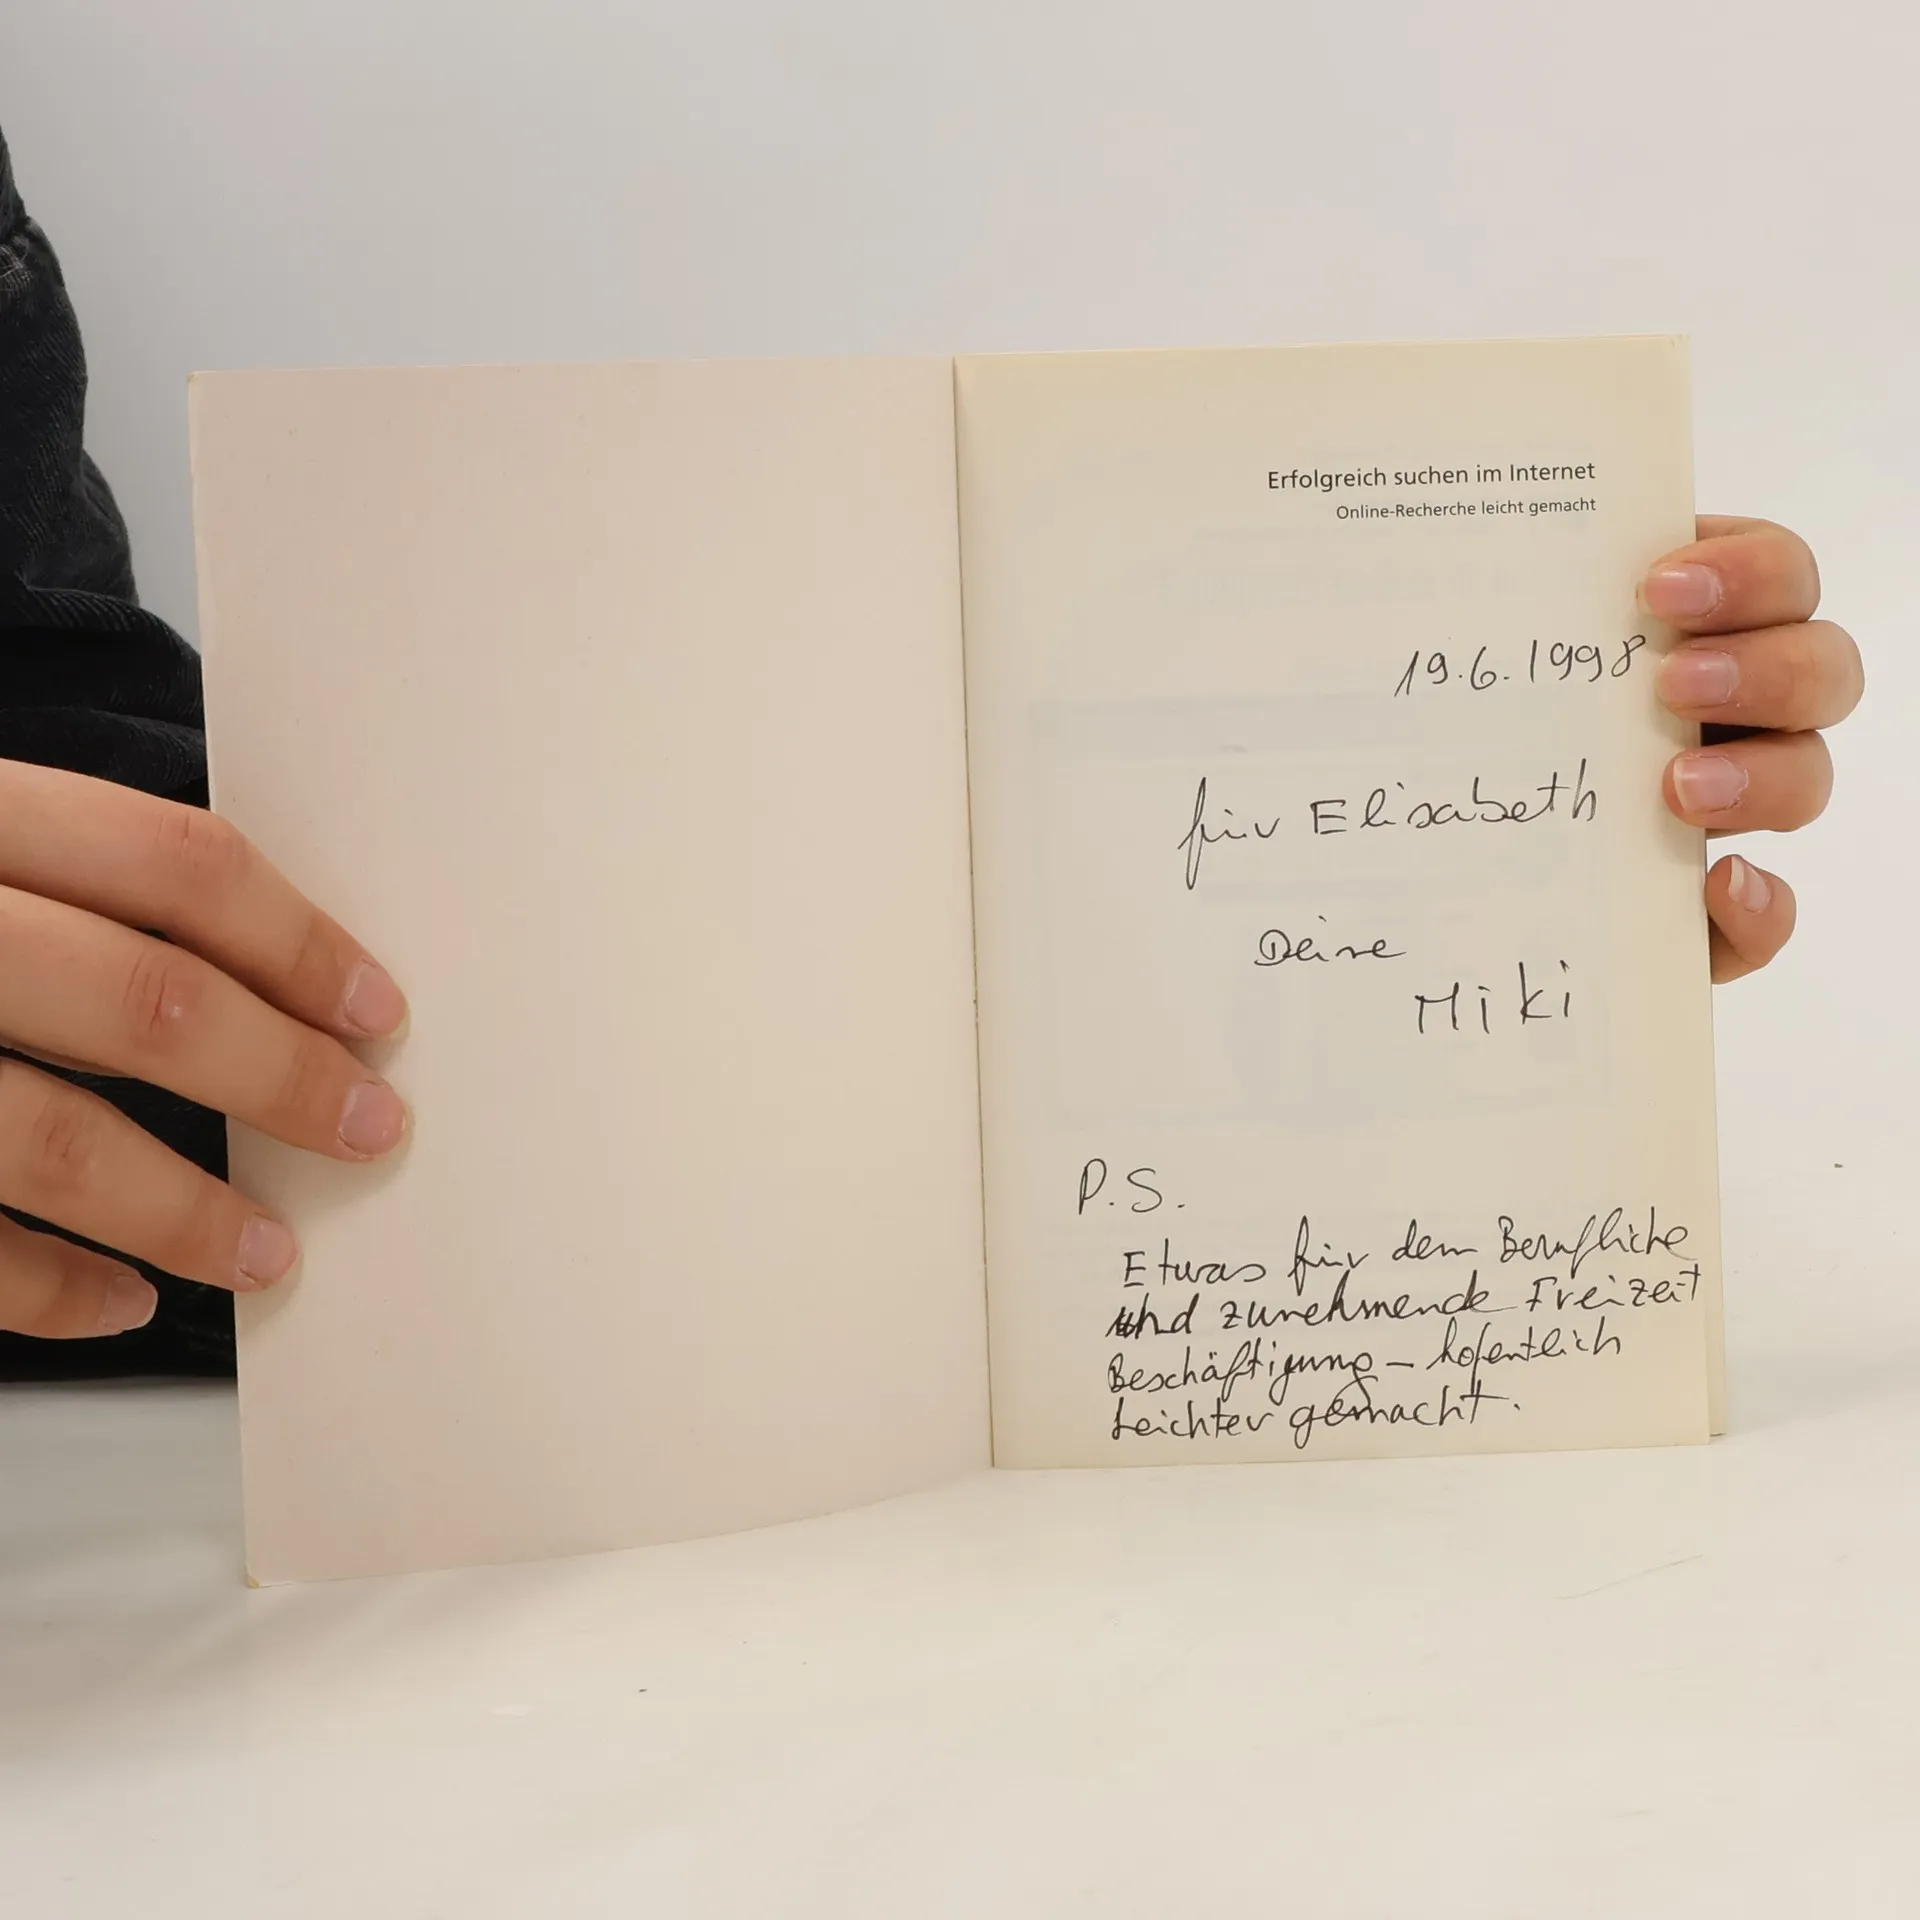 Erfolgreich suchen im Internet
Online-Recherche leicht gemacht
19.6.1998
für Elisabeth
Deine
Miki
P.S.
Etwas für dem Berufliche
und zunehmende Freizeit
Beschäftigung – hofentlich
Leichter gemacht.